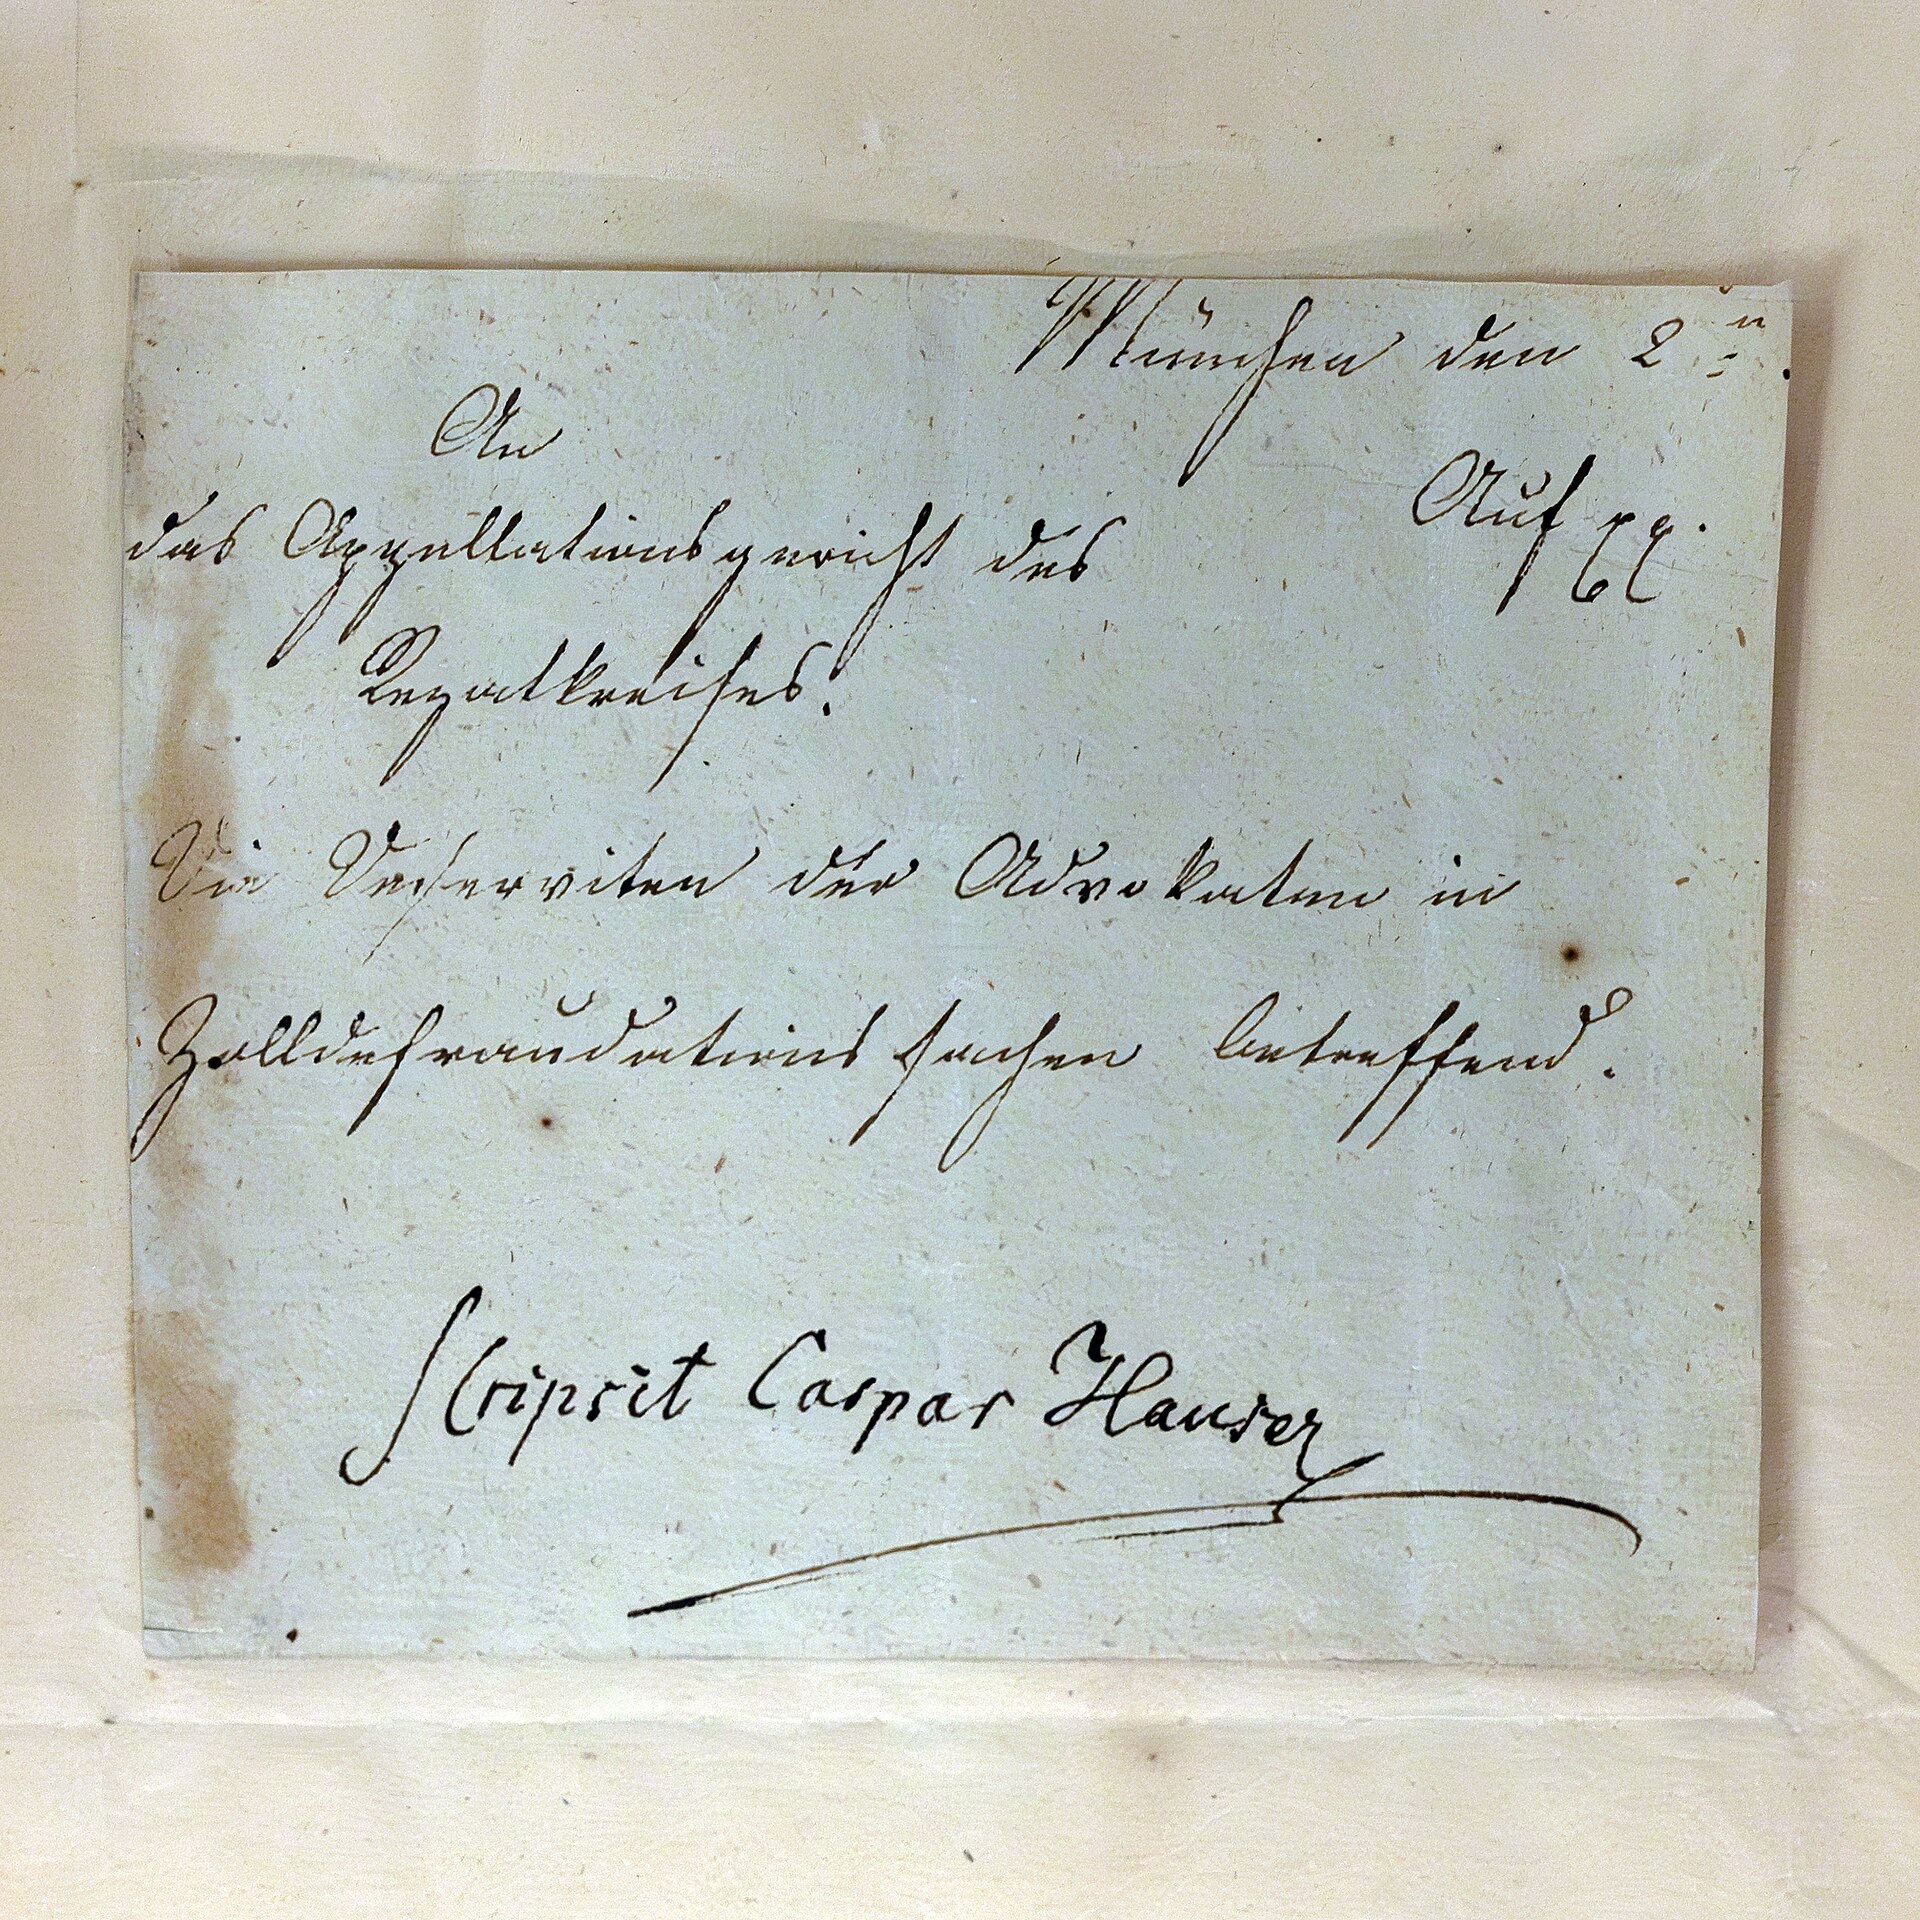 München den 2n
An
Auf
das Appellationsgericht des
Rezatkreises.
Die Deserviten der Advokaten in
Zolldefraudationssachen betreffend.
Scripsit Caspar Hauser